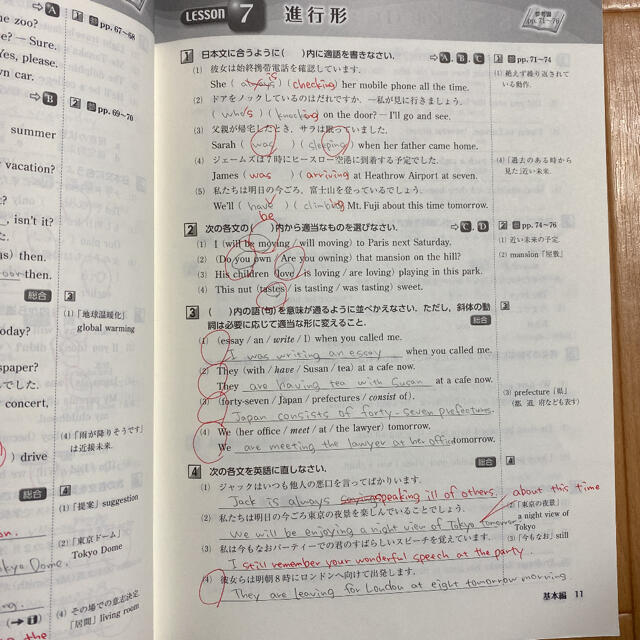 zoo?
? ― Sure.
Yes, please.
wn car.
⇨A
1 pp. 67~68
⇨B
2 pp. 69~70
summer
vacation?
, isn't it?
as) then.
then.
総合
3
(1)「地球温暖化」
global warming
oday?
spaper?
でした.
concert,
(4)「雨が降りそうです」
は近接未来.
) drive
総合
4
(1)「提案」suggestion
(2)「東京ドーム」
Tokyo Dome
(4) その場での意志決定
「居間」living room
LESSON 7 進行形
参考書
pp. 71~76
1 日本文に合うように( )内に適語を書きなさい.
⇨A, B, C
1 pp. 71~74
(1) 彼女は始終携帯電話を確認しています.
She ( is ) (checking) her mobile phone all the time.
(1) 絶えず繰り返されて
いる動作.
(2) ドアをノックしているのはだれですか. ―私が見に行きましょう.
(who's) (knocking) on the door? ― I'll go and see.
(3) 父親が帰宅したとき, サラは眠っていました.
Sarah (was) (sleeping) when her father came home.
(4) ジェームズは7時にヒースロー空港に到着する予定でした.
James (was) (arriving) at Heathrow Airport at seven.
(4)「過去のある時から
見た」近い未来.
(5) 私たちは明日の今ごろ, 富士山を登っているでしょう.
We'll (have) (climbing) Mt. Fuji about this time tomorrow.
be
2 次の各文の( )内から適当なものを選びなさい.
⇨C, D
2 pp. 74~76
(1) I (will be moving / will moving) to Paris next Saturday.
(1) 近い未来の予定.
(2) (Do you own / Are you owning) that mansion on the hill?
(2) mansion「屋敷」
(3) His children (love / is loving / are loving) playing in this park.
(4) This nut (tastes / is tasting / was tasting) sweet.
3 ( )内の語(句)を意味が通るように並べかえなさい. ただし, 斜体の動
詞は必要に応じて適当な形に変えること.
総合
3
(1) (essay / an / write / I) when you called me.
I was writing an essay when you called me.
(2) They (with / have / Susan / tea) at a cafe now.
They are having tea with Susan at a cafe now.
(3) (forty-seven / Japan / prefectures / consist of).
Japan consists of forty-seven prefectures.
(3) prefecture「県」
(都, 道, 府なども表す)
(4) We (her office / meet / at / the lawyer) tomorrow.
We are meeting the lawyer at her office tomorrow.
4 次の各文を英語に直しなさい.
総合
4
(1) ジャックはいつも他人の悪口を言ってばかりいます.
Jack is always speaking ill of others.
about this time
(2) 私たちは明日の今ごろ東京の夜景を楽しんでいることでしょう.
We will be enjoying a night view of Tokyo tomorrow.
(2)「東京の夜景」
a night view of
Tokyo
(3) 私は今もなおパーティーでの君のすばらしいスピーチを覚えています.
I still remember your wonderful speech at the party.
(3)「今もなお」still
(4) 彼女らは明朝8時にロンドンへ向けて出発します.
They are leaving for London at eight tomorrow morning.
基本編 11